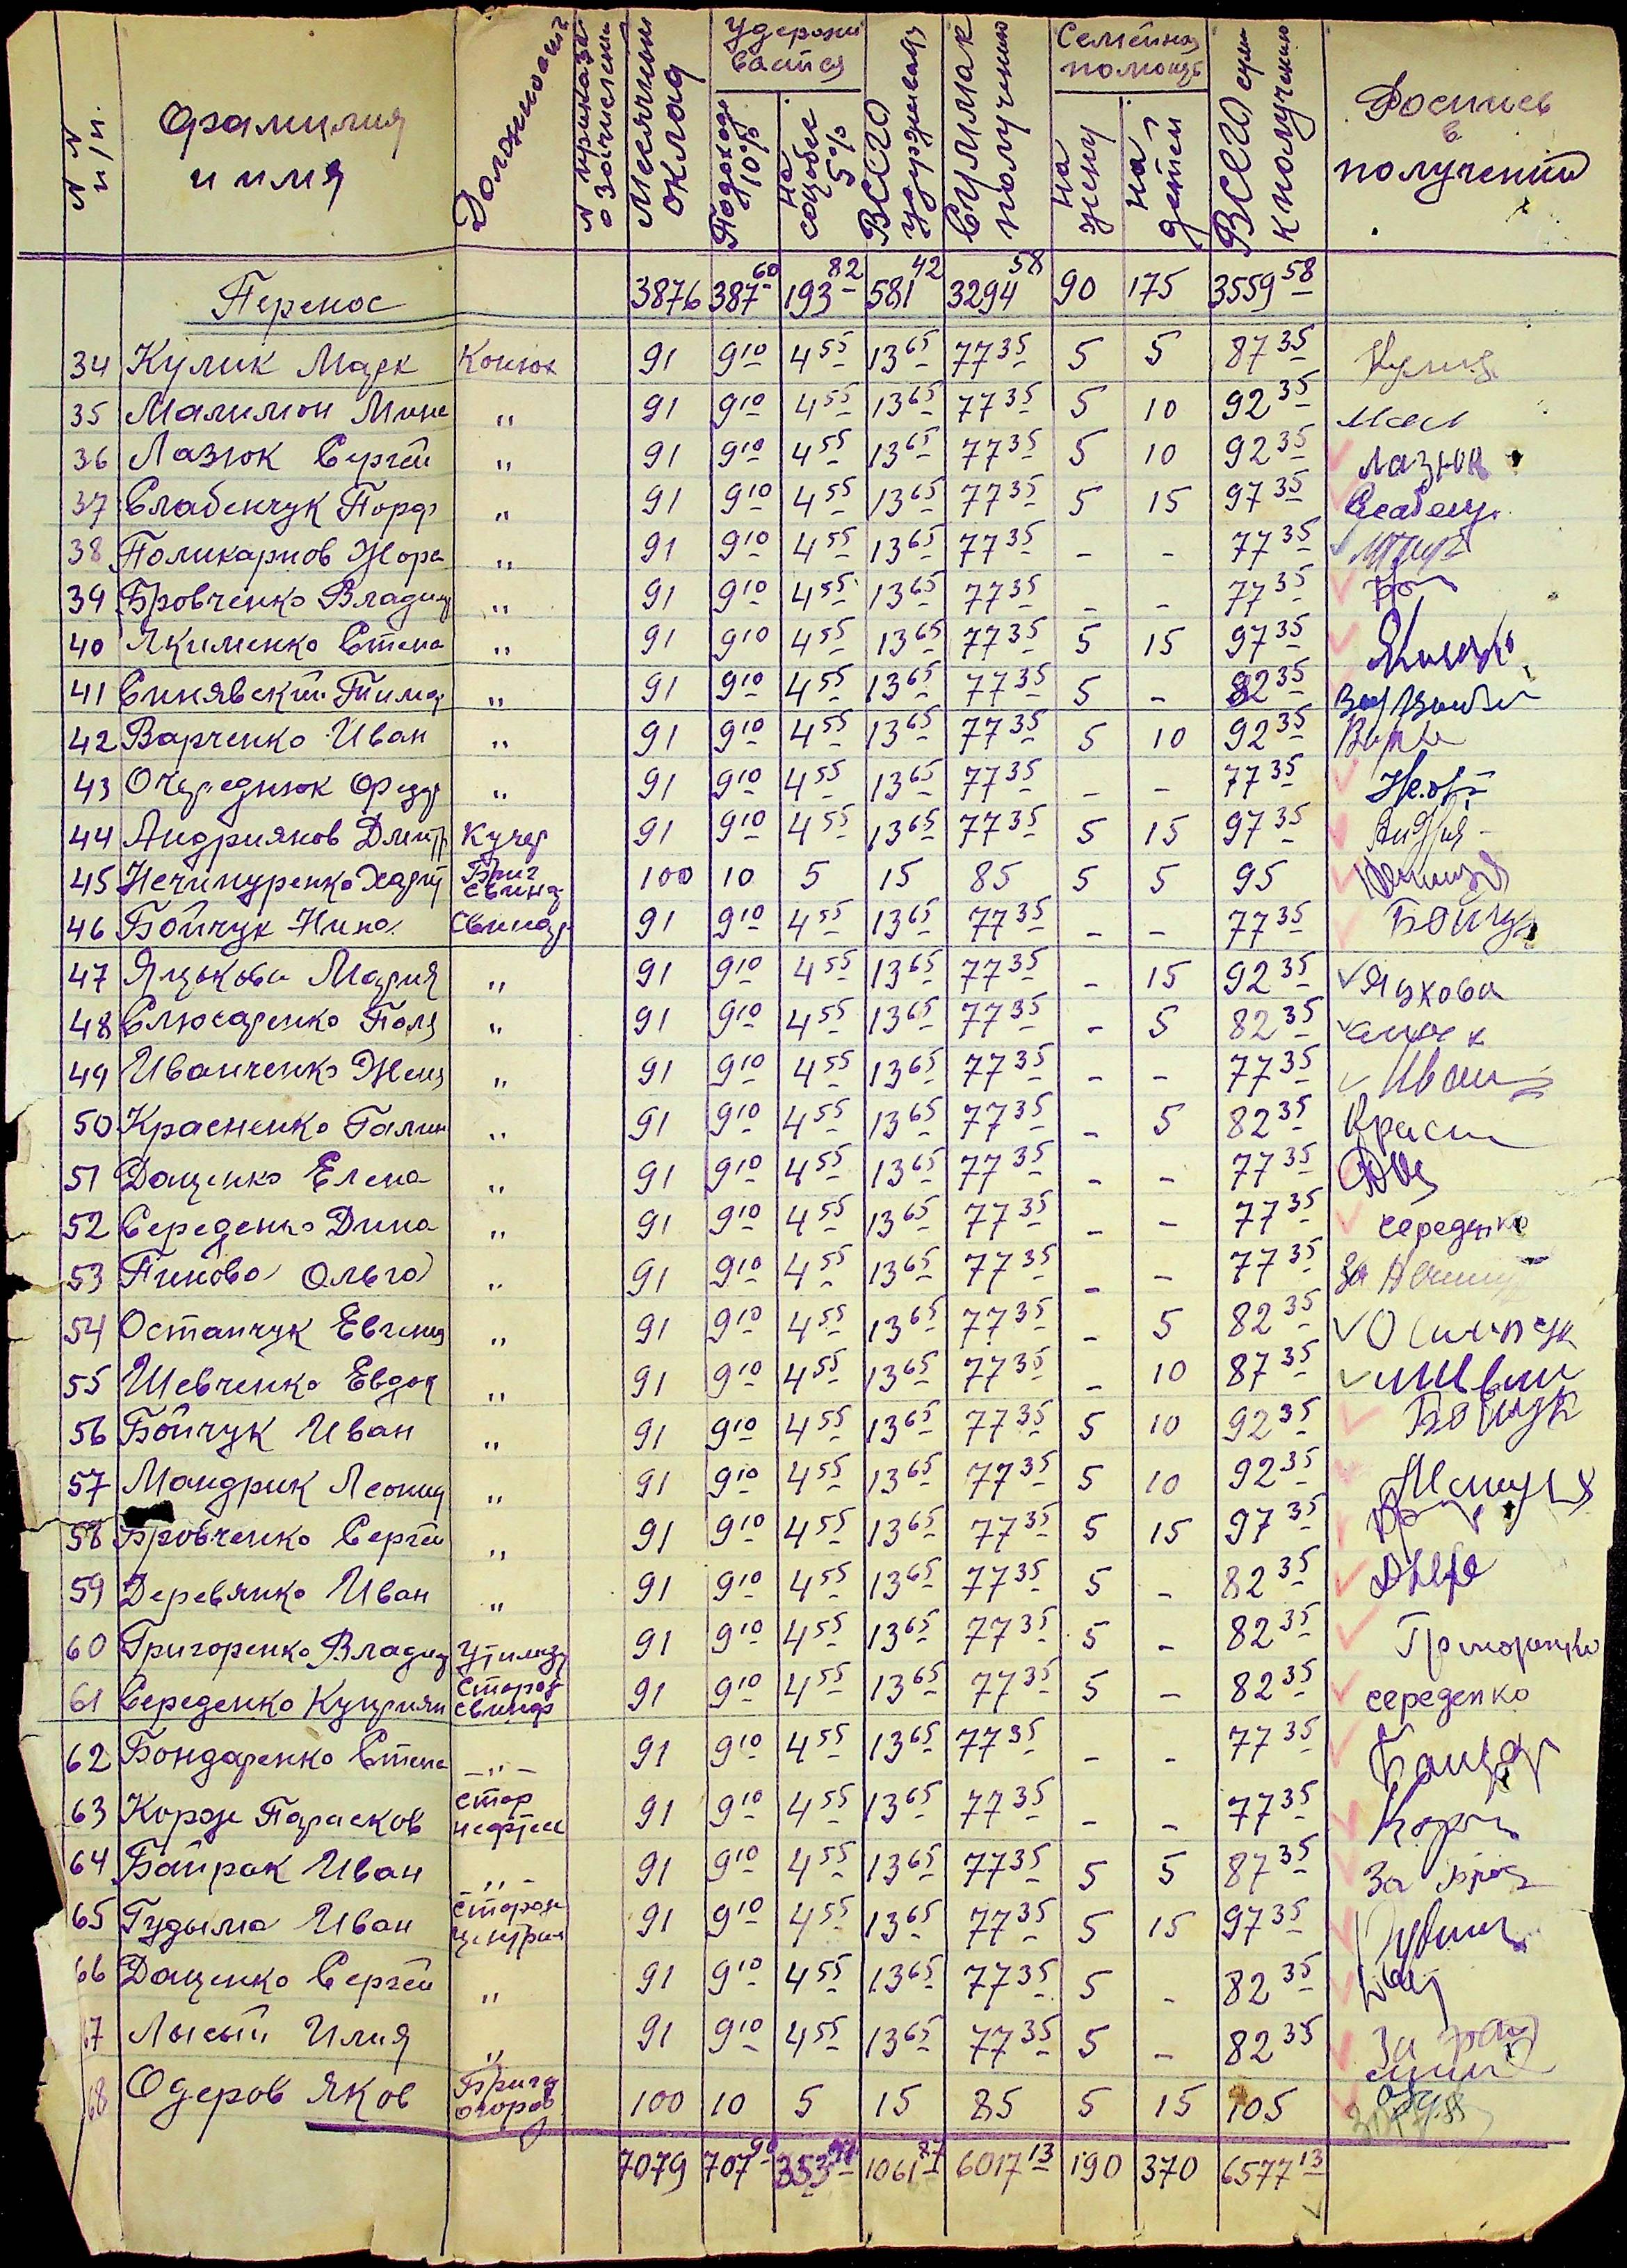 N N п/п. Фамилия и имя Должность N приказа о зачислении Месячный оклад Удерживается Подоход 10% На соцобес 5% Всего удержано Сумма к получению Семейная помощь На жену На детей Всего сумм к получению Роспись в получении
Перенос 3876 387 60 193 82 581 42 3294 58 90 175 3559 58
34 Кулик Марк Конюх 91 9 10 4 55 13 65 77 35 5 5 87 35
35 Малимон Мина " 91 9 10 4 55 13 65 77 35 5 10 92 35 Мал
36 Лазюк Сергей " 91 9 10 4 55 13 65 77 35 5 10 92 35 Лазюк
37 Слабенчук Порф " 91 9 10 4 55 13 65 77 35 5 15 97 35
38 Поликарпов Жора " 91 9 10 4 55 13 65 77 35 - - 77 35
39 Бровченко Владим " 91 9 10 4 55 13 65 77 35 - - 77 35
40 Якименко Степа " 91 9 10 4 55 13 65 77 35 5 15 97 35
41 Синявский Тимоф " 91 9 10 4 55 13 65 77 35 5 - 82 35
42 Варченко Иван " 91 9 10 4 55 13 65 77 35 5 10 92 35
43 Очереднюк Федор " 91 9 10 4 55 13 65 77 35 - - 77 35
44 Андриянов Дмитр Кучер 91 9 10 4 55 13 65 77 35 5 15 97 35
45 Нечипуренко Харит Бриг свинар 100 10 5 15 85 5 5 95
46 Бойчук Нина Свинар 91 9 10 4 55 13 65 77 35 - - 77 35 Бойчук
47 Яцькова Мария " 91 9 10 4 55 13 65 77 35 - 15 92 35 Яцкова
48 Слюсаренко Поля " 91 9 10 4 55 13 65 77 35 - 5 82 35
49 Иванченко Женя " 91 9 10 4 55 13 65 77 35 - - 77 35 Иван
50 Красненко Галин " 91 9 10 4 55 13 65 77 35 - 5 82 35 Красн
51 Даценко Елена " 91 9 10 4 55 13 65 77 35 - - 77 35
52 Середенко Дина " 91 9 10 4 55 13 65 77 35 - - 77 35 Середенко
53 Пинова Ольга " 91 9 10 4 55 13 65 77 35 - - 77 35 За
54 Остапчук Евгения " 91 9 10 4 55 13 65 77 35 - 5 82 35
55 Шевченко Евдок " 91 9 10 4 55 13 65 77 35 - 10 87 35
56 Бойчук Иван " 91 9 10 4 55 13 65 77 35 5 10 92 35 Бойчук
57 Мандрик Леонид " 91 9 10 4 55 13 65 77 35 5 10 92 35
58 Бровченко Сергей " 91 9 10 4 55 13 65 77 35 5 15 97 35
59 Деревянко Иван " 91 9 10 4 55 13 65 77 35 5 - 82 35
60 Григоренко Владим Утилизр 91 9 10 4 55 13 65 77 35 5 - 82 35 Григоренко
61 Середенко Куприян Сторож свинар 91 9 10 4 55 13 65 77 35 5 - 82 35 Середенко
62 Бондаренко Степа -"- 91 9 10 4 55 13 65 77 35 - - 77 35
63 Корж Парасков Стор нефтеб 91 9 10 4 55 13 65 77 35 - - 77 35 Корж
64 Байрак Иван -"- 91 9 10 4 55 13 65 77 35 5 5 87 35 За
65 Гудыма Иван Сторож централ 91 9 10 4 55 13 65 77 35 5 15 97 35
66 Даценко Сергей " 91 9 10 4 55 13 65 77 35 5 - 82 35
67 Лысый Илия " 91 9 10 4 55 13 65 77 35 5 - 82 35 За
68 Одеров Яков Бригад огород 100 10 5 15 85 5 15 105
7079 707 90 353 97 1061 87 6017 13 190 370 6577 13